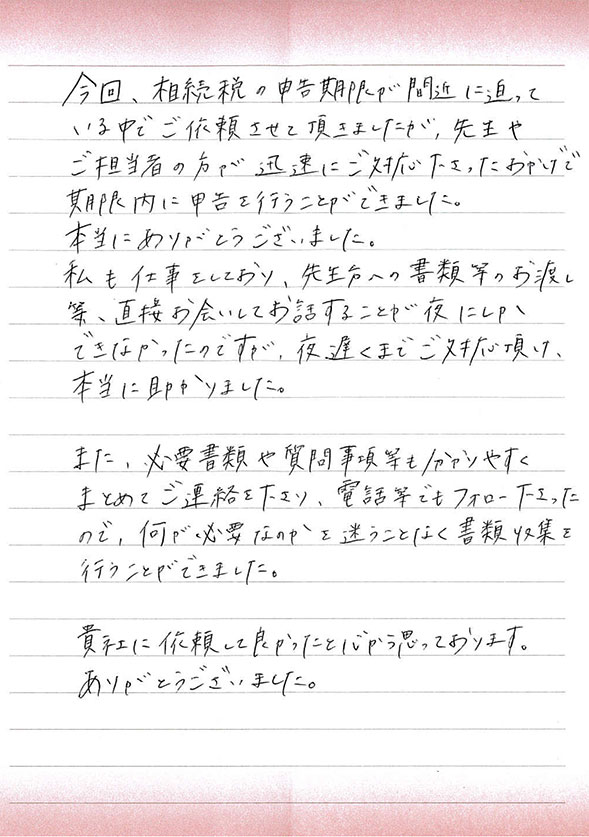 今回、相続税の申告期限が間近に迫って
いる中でご依頼させて頂きましたが、先生や
ご担当者の方が迅速にご対応下さったおかげで
期限内に申告を行うことができました。
本当にありがとうございました。
私も仕事をしており、先生方への書類等のお渡し
等、直接お会いしてお話することが夜にしか
できなかったのですが、夜遅くまでご対応頂け、
本当に助かりました。
また、必要書類や質問事項等も分かりやすく
まとめてご連絡を下さり、電話等でもフォロー下さった
ので、何が必要なのかを迷うことなく書類収集を
行うことができました。
貴社に依頼して良かったと心から思っております。
ありがとうございました。